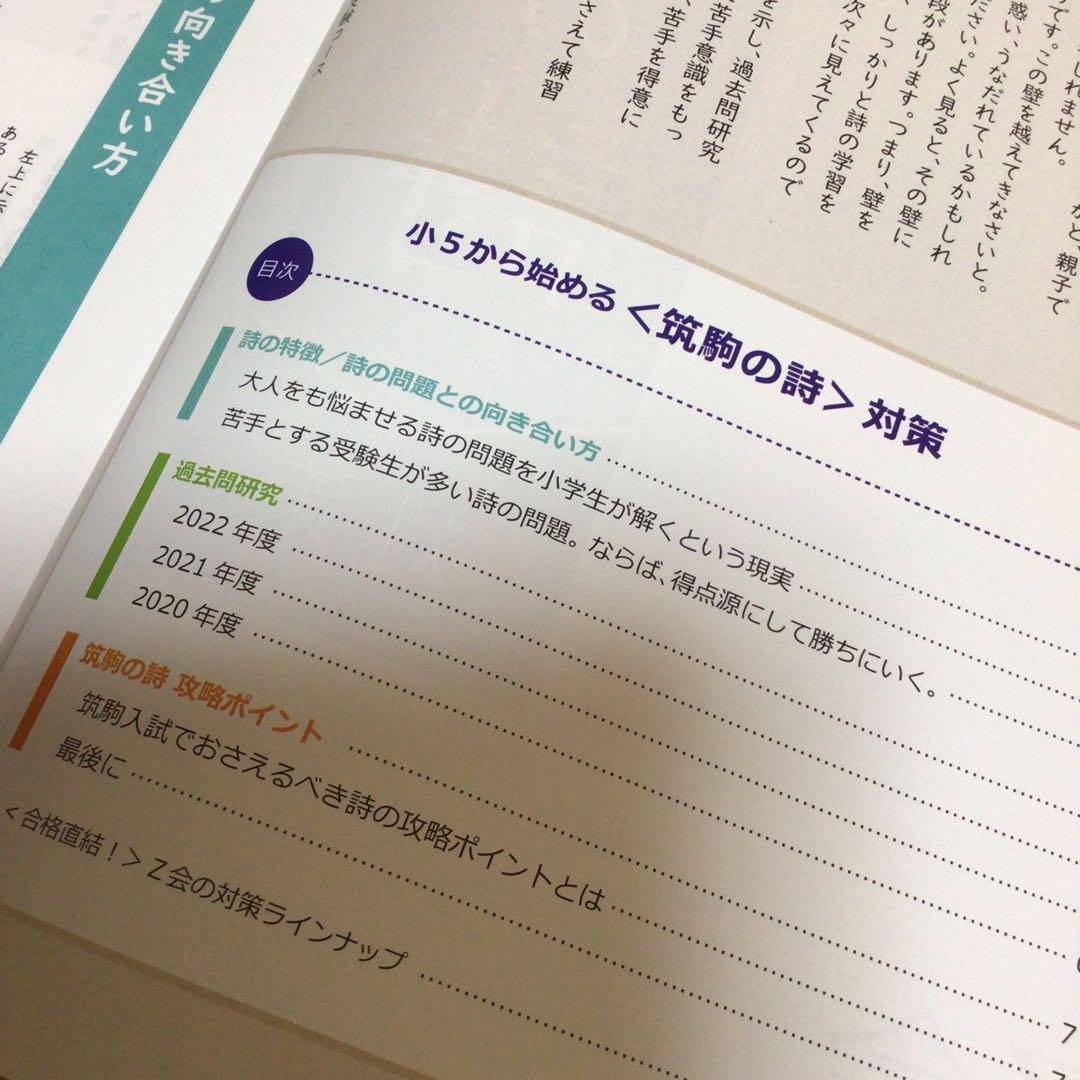 向き合い方
左上に示
ある
しれません。
かと、親子で
です。この壁を越えてきなさいと。
惑い、うなだれているかもしれ
ださい。よく見ると、その壁に
段があります。つまり、壁を
、しっかりと詩の学習を
次々に見えてくるので
を示し、過去問研究
苦手意識をもっ
、苦手を得意に
さえて練習
小5から始める<筑駒の詩>対策
目次
詩の特徴/詩の問題との向き合い方
大人をも悩ませる詩の問題を小学生が解くという現実
苦手とする受験生が多い詩の問題。ならば、得点源にして勝ちにいく。
過去問研究
2022年度
2021年度
2020年度
筑駒の詩 攻略ポイント
筑駒入試でおさえるべき詩の攻略ポイントとは
最後に
7
<合格直結!>Z会の対策ラインナップ